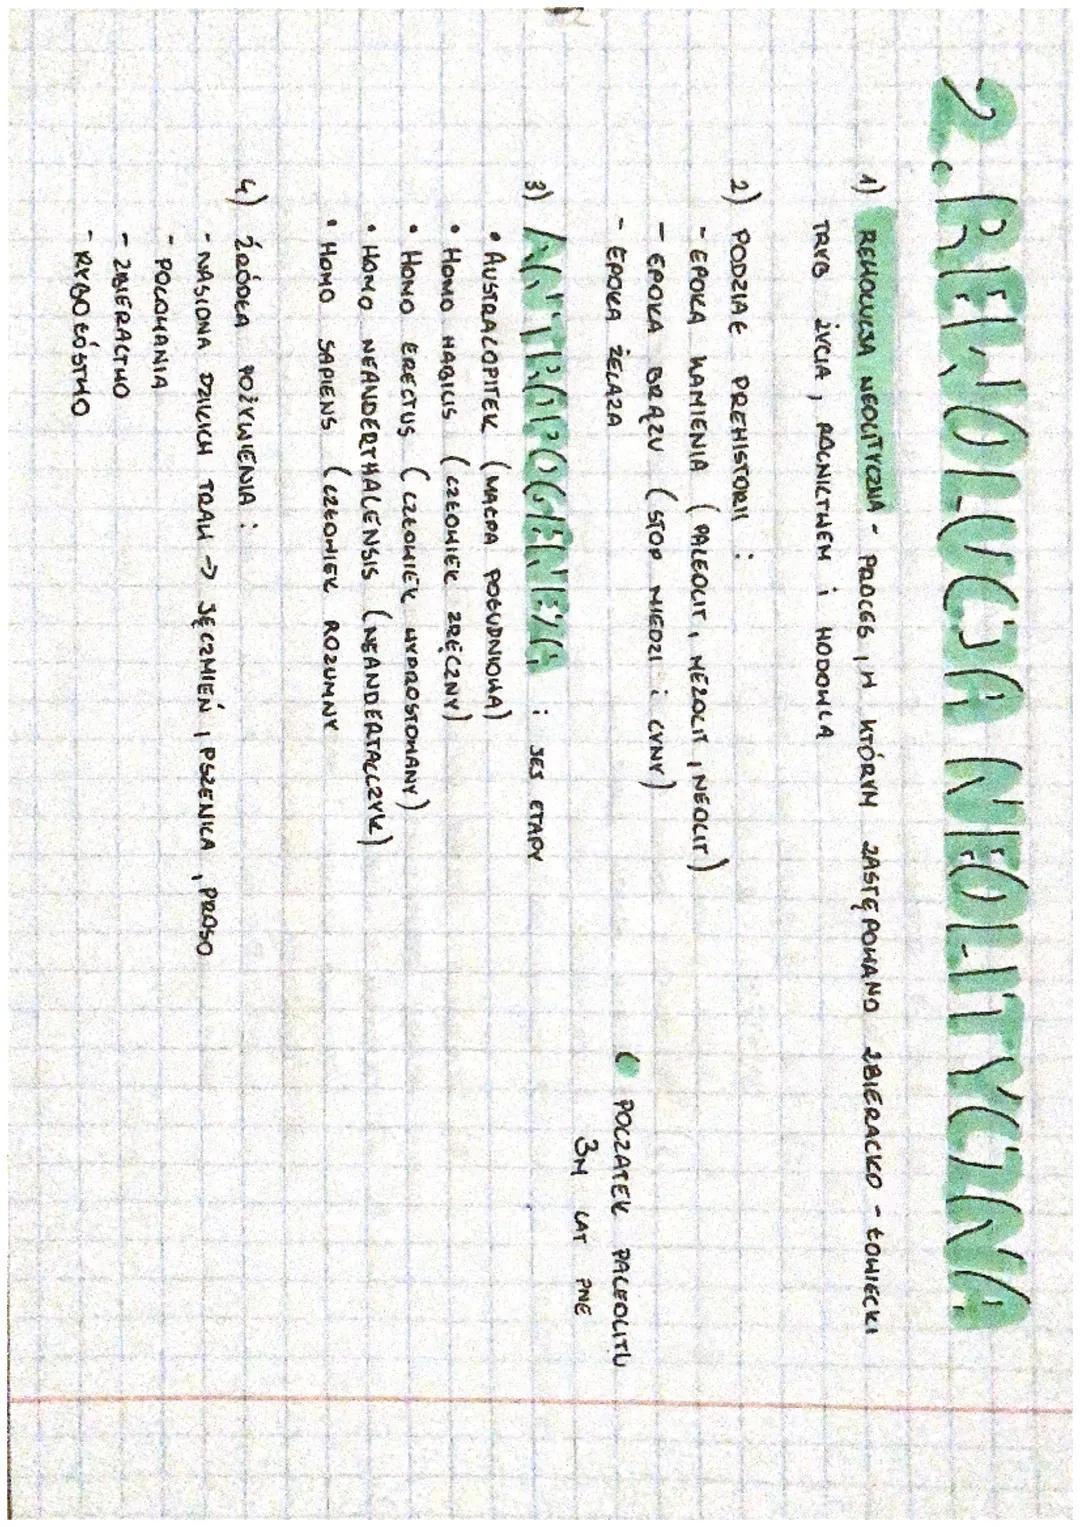 2. REWOLUCJA NEOLITYCZNA
1) REWOLUCJA NEOLITYCZNA - PROCES, W KTÓRYM ZASTĘPOWANO ZBIERACKO - ŁOWIECKI
TRYB ŻYCIA, ROLNICTWEM i HODOWLA
2) PODZIAŁ PREHISTORII :
- EPOKA KAMIENIA (PALEOLIT, MEZOLIT, NEOLIT)
- EPOKA BRĄZU (STOP MIEDZI i CYNY)
- EPOKA ŻELAZA
POCZATEK PALEOLITU
3M LAT PNE
3) ANTROPOGENEZA : JEJ ETAPY
• AUSTRALOPITEK (MAŁPA POŁUDNIOWA)
• HOMO HABILIS (CZŁOWIEK ZRĘCZNY)
• HOMO ERECTUS (CZŁOWIEK WYPROSTOWANY)
• HOMO NEANDERTHALENSIS (NEANDERTALCZYK)
• HOMO SAPIENS (CZŁOWIEK ROZUMNY
4) ŹRÓDŁA POŻYWIENIA :
- NASIONA DZIKICH TRAW -> JĘCZMIEŃ, PSZENICA, PROSO
- POLOWANIA
- ZBIERACTWO
- RYBOŁÓSTWO